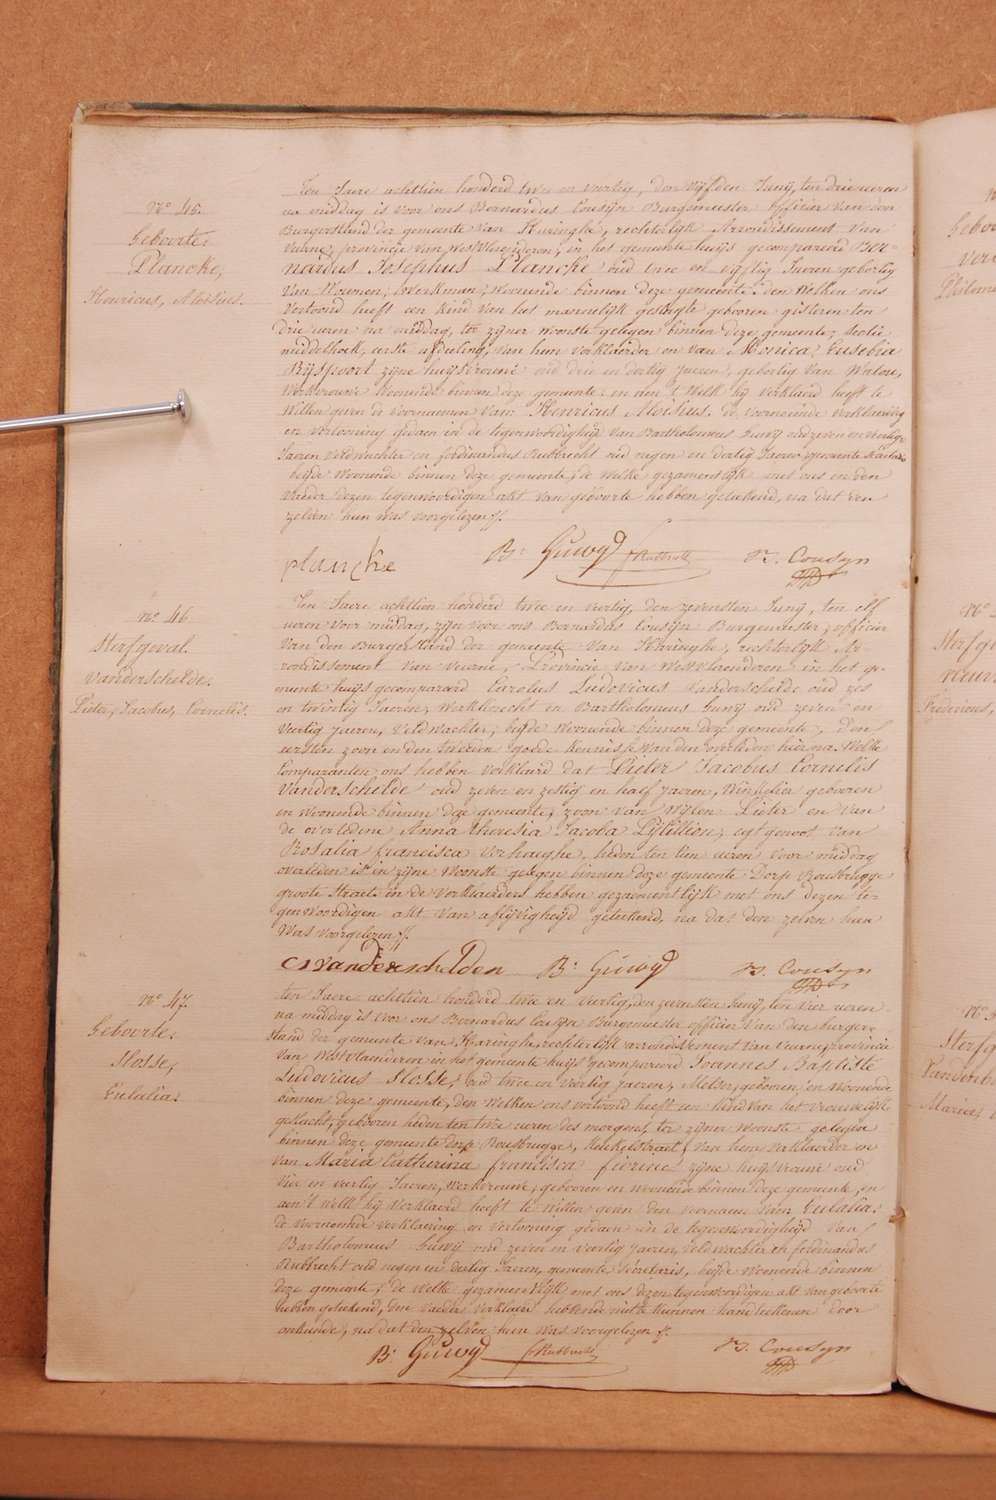 N.º 45.
Geboorte.
Plancke,
Henricus, Aloïsius.
Ten Jaere achttien honderd twee en veertig, den vyfden Junÿ, ten drie ueren
na middag is voor ons Bernardus Cousÿn Burgemeester officier van den
Burgerstand der gemeente van Haringhe, rechterlÿk Arrondissement van
Veurne, provincie van Westvlaenderen, in het gemeente huijs gecompareerd Ber-
nardus Josephus Plancke oud twee en vijftig Jaeren geboortig
van Woumen, Werkman, Woonende binnen deze gemeente. den welken ons
vertoond heeft een kind van het mannelijk geslagte gebooren gisteren ten
drie ueren na middag, ter zijner woonste gelegen binnen deze gemeente, sectie
middelhoek, eerste afdeeling, van hem verklaerder en van Monica, Eusebia
Rijspoort zijne huijsvrouwe oud drie en dertig jaeren, geboortig van Watou,
Werkvrouwe woonende binnen deze gemeente, en aen 't welk hij verklaerd heeft te
willen geven de voornaemen van: Henricus Aloïsius. de voornoemde verklaering
en vertooning gedaen in de tegenwoordigheijd van Bartholomeus Guwij oud zeven en veertig
Jaeren veldwachter en ferdinandus Rubbrecht oud negen en dertig Jaeren gemeente secretaris
beijde woonende binnen deze gemeente, de welke gezamentlijk met ons en den
vader dezen tegenwoordigen akt van geboorte hebben geteekend, na dat den
zelven hun was voorgelezen //.
plancke B. Guwÿ f Rubbrecht B. Cousyn
N.º 46
Sterfgeval.
Vanderschelde.
Pieter, Jacobus, Cornelis.
Ten Jaere achttien honderd twee en veertig, den zevensten Junÿ, ten elf
ueren voor middag, zijn voor ons Bernardus Cousijn Burgemeester, officier
van den Burgerstand der gemeente van Haringhe, rechterlijk Ar-
rondissement van Veurne, Provincie van Westvlaenderen in het ge-
meente huijs gecompareerd Carolus Ludovicus Vanderschelde oud zes
en twintig Jaeren, Werkknecht en Bartholomeus Guwij oud zeven en
veertig jaeren, veldwachter, beijde woonende binnen deze gemeente, den
eersten zoon en den tweeden goede kennisse van den overleden hierna. Welke
Comparanten ons hebben verklaerd dat Pieter Jacobus Cornelis
Vanderschelde oud zeven en zestig en half jaeren, gebooren
en woonende binnen deze gemeente, zoon van wijlen Pieter en van
de overledene Anna theresia Jacoba egtgenoot van
Rosalia francisca Verhaeghe, heden ten tien ueren voor middag
overleden is in zijne woonste gelegen binnen deze gemeente Dorp Rousbrugge
groote straet. en de verklaerders hebben gezamentlijk met ons dezen te-
genwoordigen akt van aflijvigheijd geteekend, na dat den zelven hun
was voorgelezen //.
C L vanderschelden B. Guwÿ B. Cousyn
N.º 47.
Geboorte.
Slosse,
Eulalia.
ten Jaere achttien honderd twee en veertig, den zevensten Junÿ, ten vier ueren
na middag is voor ons Bernardus Cousijn Burgemeester officier van den burger-
stand der gemeente van Haringhe, rechterlijk arrondissement van Veurne, provincie
van Westvlaenderen in het gemeente huijs gecompareerd Joannes Baptiste
Ludovicus Slosse, oud twee en veertig jaeren, Metser, gebooren en woonende
binnen deze gemeente, den welken ons vertoond heeft een kind van het vrouwelijk
geslacht, gebooren heden ten twee ueren des morgens, ter zijner woonste gelegen
binnen deze gemeente dorp Rousbrugge, van hem verklaerder en
van Maria Catherina francisca zijne huijsvrouwe oud
vier en veertig Jaeren, werkvrouwe, gebooren en woonende binnen deze gemeente, en
aen 't welk hij verklaerd heeft te willen geven den voornaem van Eulalia.
de voornoemde verklaering en vertooning gedaen in de tegenwoordigheijd van
Bartholomeus Guwij oud zeven en veertig jaeren, veldwachter en ferdinandus
Rubbrecht oud negen en dertig Jaeren, gemeente secretaris, beijde woonende binnen
deze gemeente, de welke gezamentlijk met ons dezen tegenwoordigen akt van geboorte
hebben geteekend, den vader verklaerd hebbende niet te kunnen handteekenen door
onkunde, na dat den zelven hun was voorgelezen //.
B. Guwÿ f Rubbrecht B. Cousyn